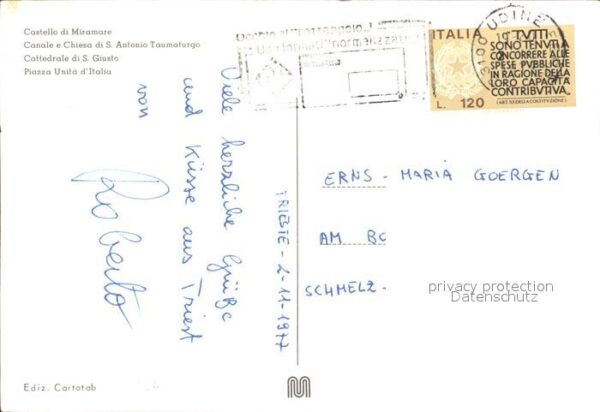 Castello di Miramare
Canale e Chiesa di S. Antonio Taumaturgo
Cattedrale di S. Giusto
Piazza Unità d'Italia
Viele herzliche Grüße
und Küsse aus Triest
von
Roberto
TRIESTE - 2-11-1977
UDINE
ITALIA
TUTTI
SONO TENUTI A
CONCORRERE ALLE
SPESE PUBBLICHE
IN RAGIONE DELLA
LORO CAPACITÀ
CONTRIBUTIVA
(ART. 53 DELLA COSTITUZIONE)
L. 120
ERNS-MARIA GOERGEN
AM BC
SCHMELZ-
privacy protection
Datenschutz
Ediz. Cartotab